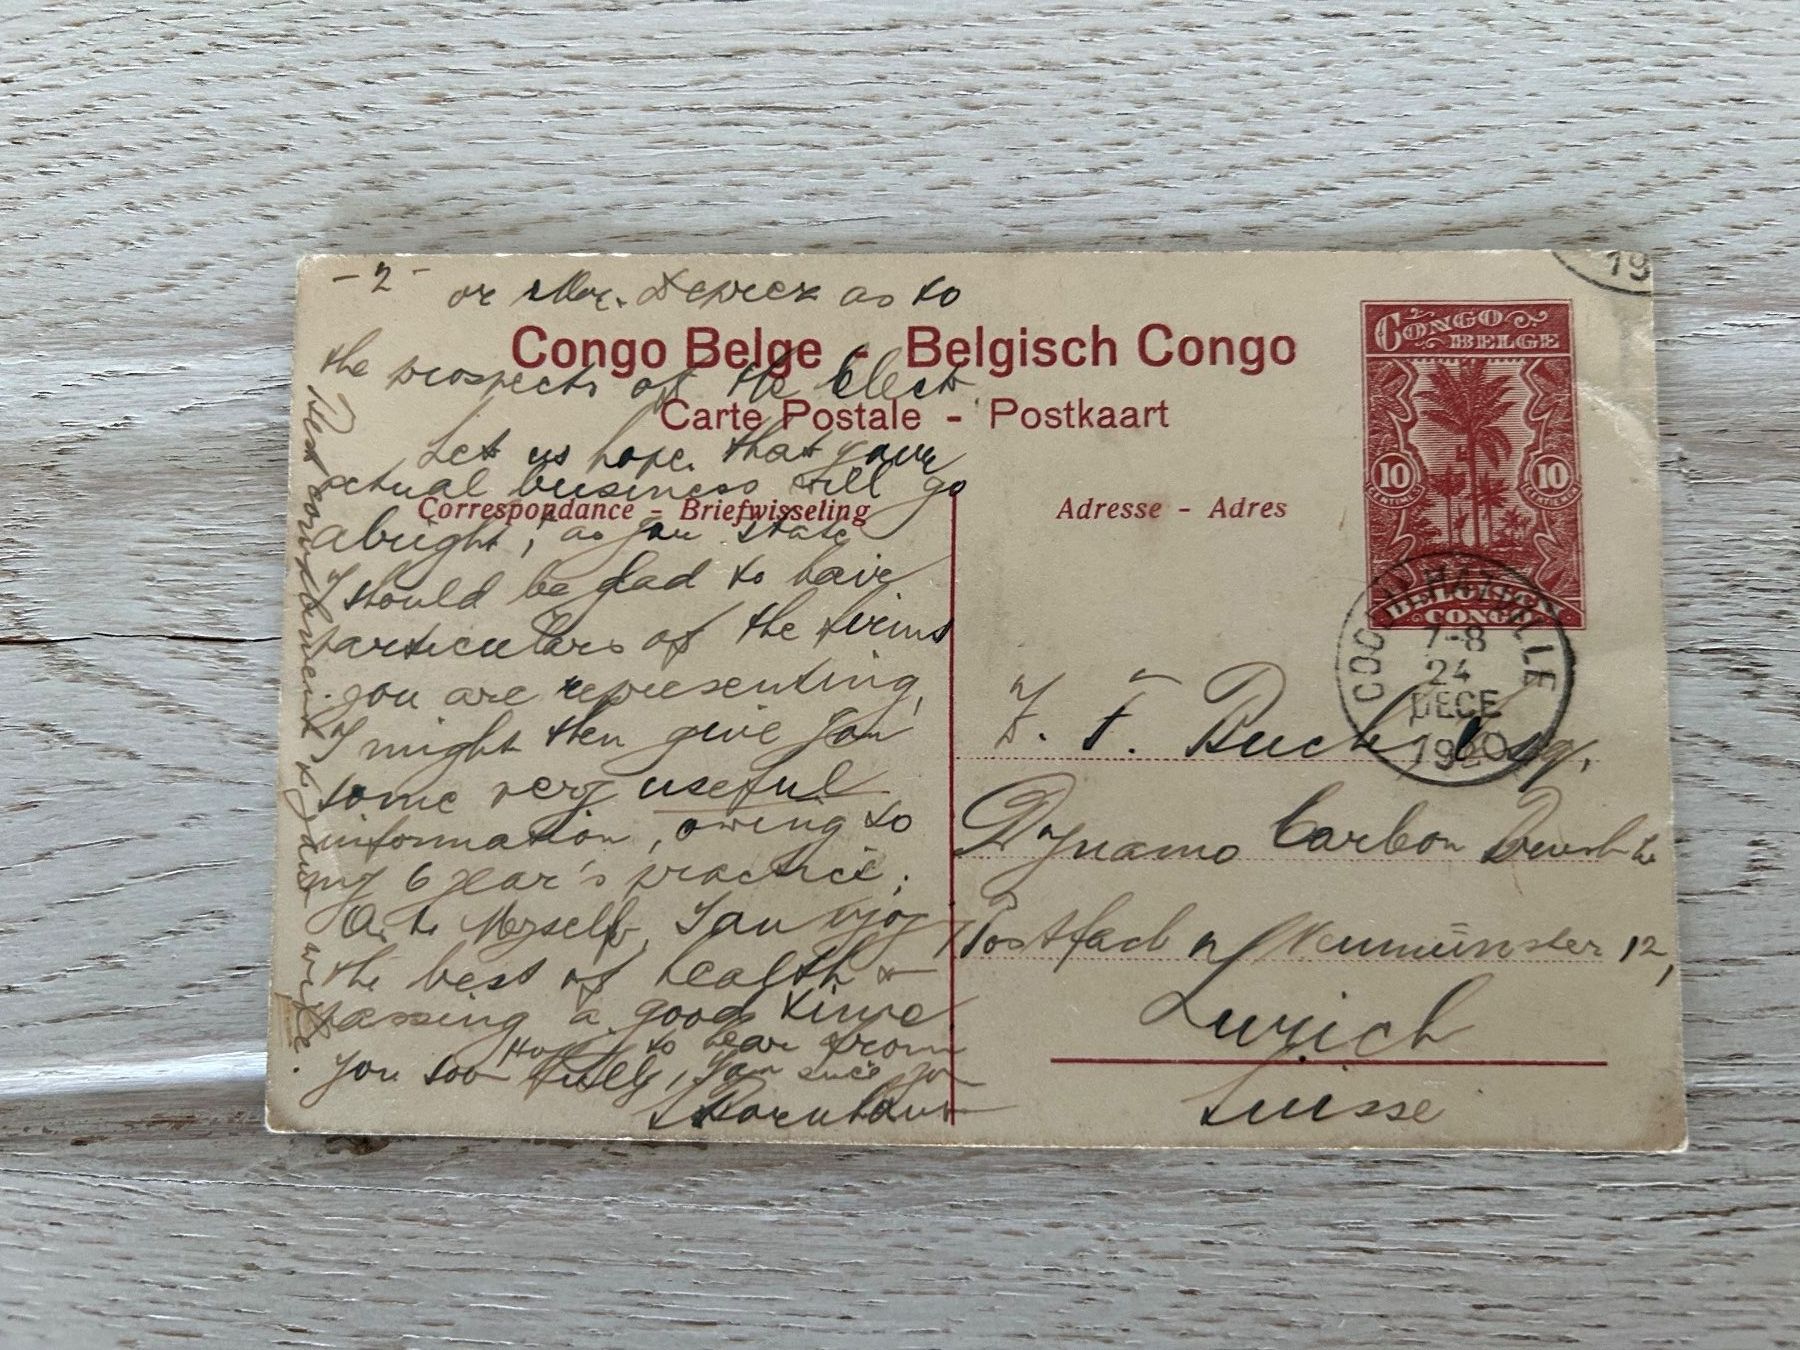 - 2 - or Mr. as to
the prospects of the Elect.
Let us hope that your
actual business will go
alright; as you state
I should be glad to have
particulars of the firms
you are representing,
I might then give you
some very useful
information, owing to
my 6 year's practice;
As to Myself, I am
the best of health &
passing a good time
Hope to hear from
you soon fully, I am
to your wife.
Congo Belge - Belgisch Congo
Carte Postale - Postkaart
Correspondance - Briefwisseling
Adresse - Adres
CONGO BELGE
10 10
CENTIMES CENTIMES
BELGISCH CONGO
COQUILHATVILLE
7-8
24
DECE
1920
19
F. F. Buch Esq.,
Dynamo Carbon
Postfach n/ Neumünster 12,
Zurich
Suisse